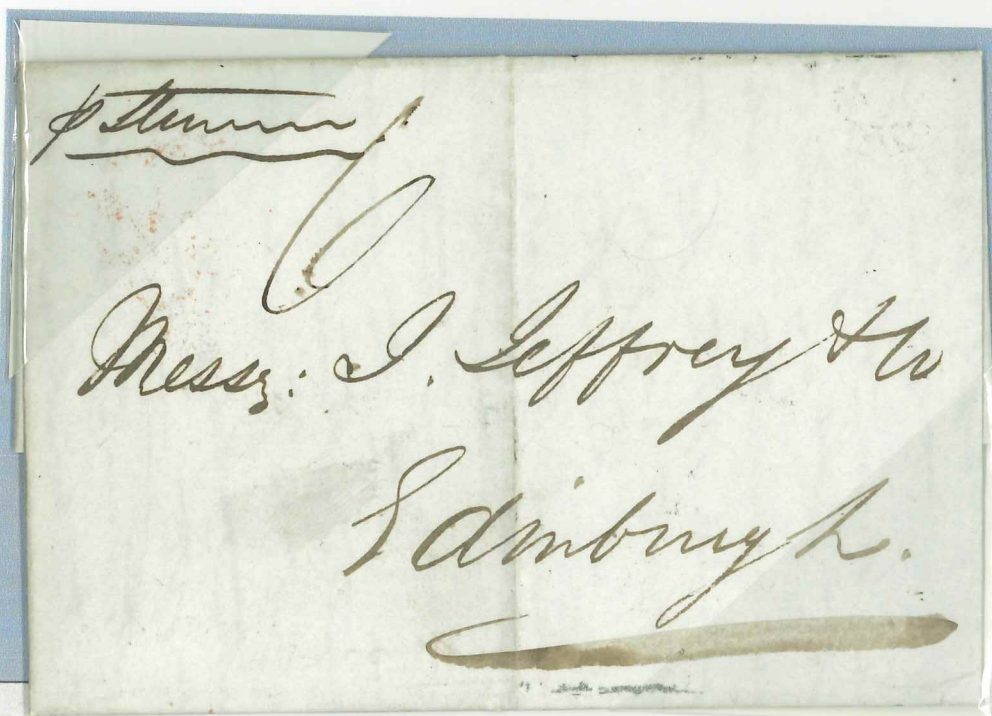 p Steamer
6
Messrs: J. Jeffrey & Co
Edinburgh.